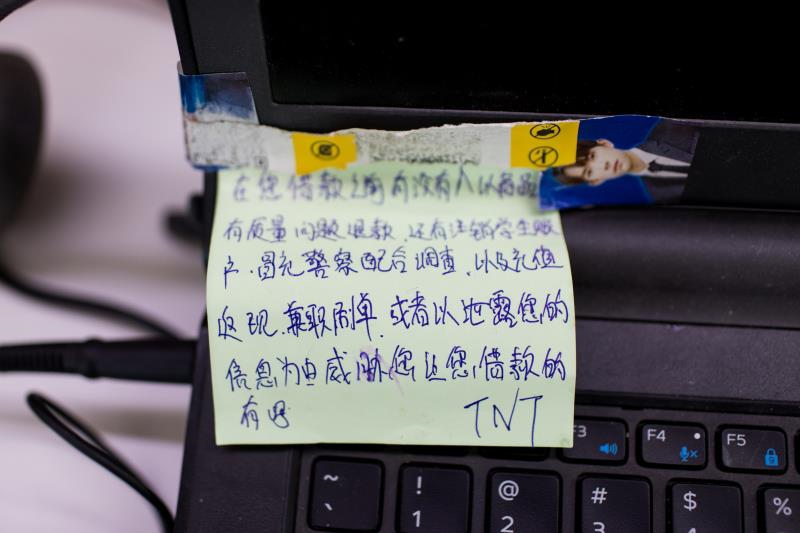 在您借款之前有没有人以商品
有质量问题退款、还有注销学生账
户、冒充警察配合调查、以及充值
返现、兼职刷单、或者以泄露您的
信息为由威胁您让您借款的
有吗
TNT
F3
F4
F5
~
`
!
1
@
2
#
3
$
4
%